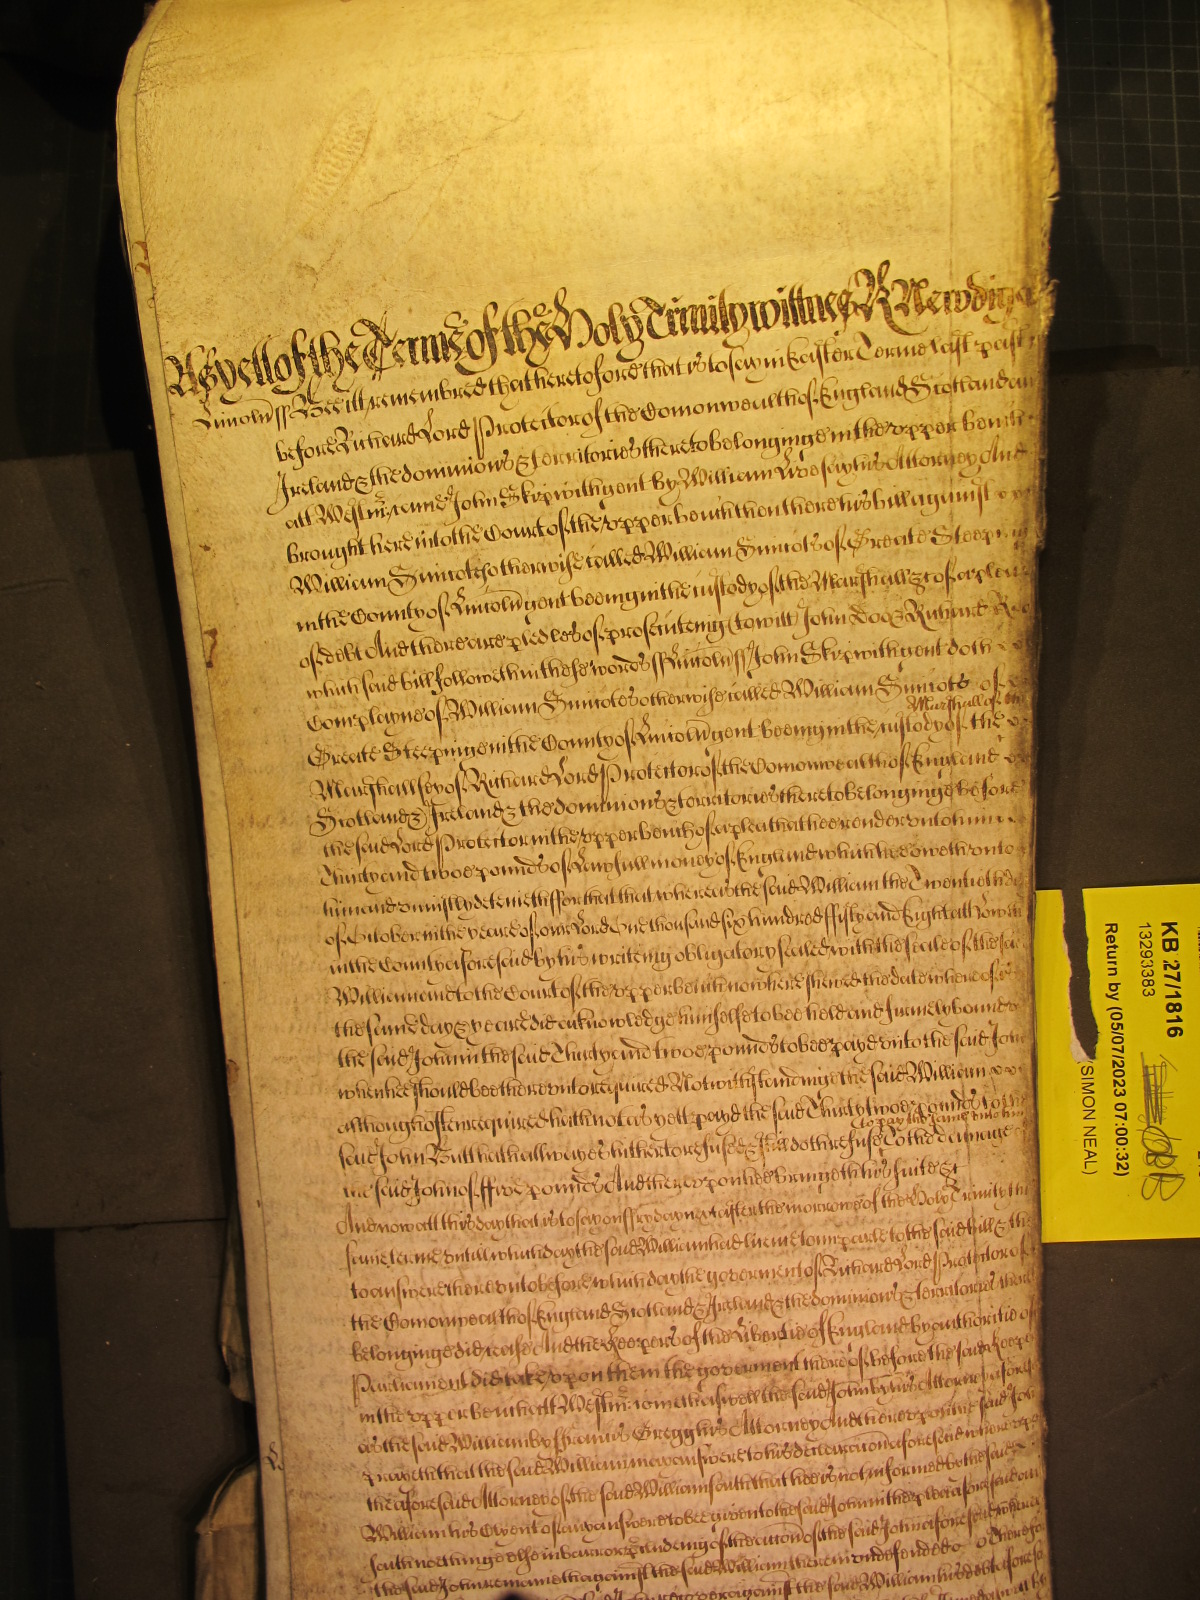 As yett of the Terme of the Holy Trinity wittnes R Newdigate
Lincoln ss Bee itt remembred that heretofore that is to say in Easter Terme last past
before Richard Lord Protector of the Comonwealth of England Scotland and
Ireland & the dominions & territories thereto belonginge in the upper bench
att Westmr came John Skipwith gent by William his Attorney And
brought here into the Court of the upper bench then there his bill against
William Smicotes otherwise called William Smicots of Greate Steeping
in the County of Lincoln gent beeing in the custody of the Marshall &c of a plea
of debt And there are pledges of prosecuteing (to witt) John Doo & Richard Roo
which said bill followeth in these words ss Lincoln ss John Skipwith gent doth
Complayne of William Smicotes otherwise called William Smicots of
Marshall of the
Greate Steepinge in the County of Lincoln gent beeing in the custody of the
Marshallsey of Richard Lord Protector of the Comonwealth of England
Scotland & Ireland & the dominions & territories thereto belonginge before
the said Lord Protector in the upper bench of a plea that hee render unto him
Thirty and twoe pounds of lawfull money of England which hee oweth unto
him and uniustly deteineth for that that whereas the said William the Twentieth day
of October in the yeare of our Lord One thousand six hundred fifty and Eight att
in the County aforesaid by his writeing obligatory sealed with the seale of the said
William and to the Court of the upper bench now here shewed the date whereof is
the same day & yeare did acknowledge himselfe to bee held and firmely bound
the said John in the said Thirty and twoe pounds to bee payd unto the said John
when hee should bee thereunto required Notwithstandinge the said William
although often required hath not as yett payd the said Thirty twoe pounds to the
to pay the same unto him
said John But hath allwayes hitherto refused & still doth refuse To the damage of
the said John of ffive pounds And thereupon hee bringeth his suite &c
And now att this day that is to say on ffryday next after the morrowe of the Holy Trinity this
same terme untill which day the said William had licence to imparle to the said bill & then
to answere thereunto before which day the goverment of Richard Lord Protector of
the Comonwealth of England Scotland & Ireland & the dominions & territories thereto
belonginge did cease And the Keepers of the Libertie of England by authoritie of
Parliament did take upon them the goverment thereof before the said Keepers
in the upper bench att Westmr come aswell the said John by his Attorney aforesaid
as the said William by ffrancis Gregg his Attorney And thereupon the said John
prayeth that the said William may answere to his declaracon aforesaid whereupon
the aforesaid Attorney of the said William saith that hee is not informed by the said
William his Clyent of any answere to bee given to the said John in the plea aforesaid
saith nothinge else in barr or precludeing of the accon of the said John aforesaid whereby
the said John remaineth against the said William therein undefended Therefore
against the said William his debt aforesaid